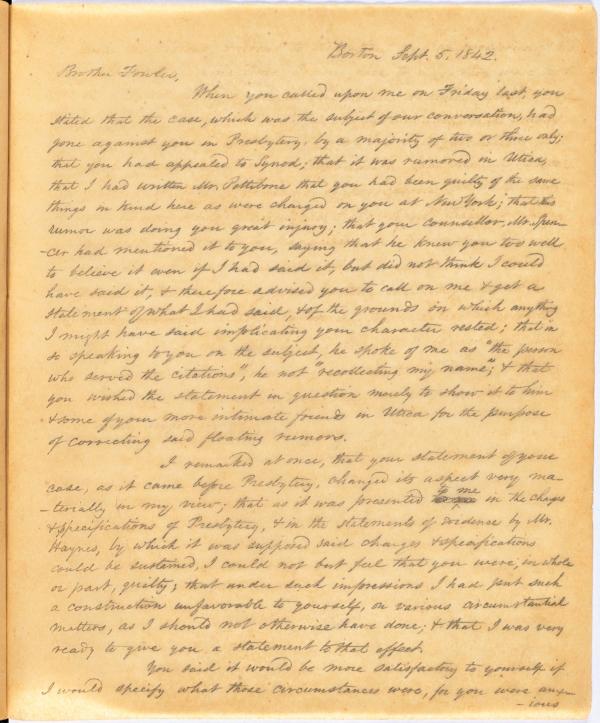 Boston Sept. 5. 1842.
Brother Fowler,
When you called upon me on Friday last, you
stated that the case, which was the subject of our conversation, had
gone against you in Presbytery, by a majority of two or three only;
that you had appealed to Synod; that it was rumored in Utica,
that I had written Mr. Pettibone that you had been guilty of the same
things in kind here as were charged on you at New York; that this
rumor was doing you great injury; that your counsellor, Mr. Spen-
-cer had mentioned it to you, saying that he knew you too well
to believe it even if I had said it, but did not think I could
have said it, & therefore advised you to call on me & get a
statement of what I had said, & of the grounds on which anything
I might have said implicating your character rested; that in
so speaking to you on the subject, he spoke of me as "the person
who served the citations", he not "recollecting my name"; & that
you wished the statement in question merely to show it to him
& some of your more intimate friends in Utica for the purpose
of correcting said floating rumors.
I remarked at once, that your statement of your
case, as it came before Presbytery, changed its aspect very ma-
-terially in my view; that as it was presented to me in the charges
& specifications of Presbytery, & in the statements of evidence by Mr.
Haynes, by which it was supposed said charges & specifications
could be sustained, I could not but feel that you were, in whole
or part, guilty; that under such impressions I had put such
a construction unfavorable to yourself, on various circumstantial
matters, as I should not otherwise have done; & that I was very
ready to give you a statement to that effect.
You said it would be more satisfactory to yourself if
I would specify what those circumstances were, for you were anx-
-ious